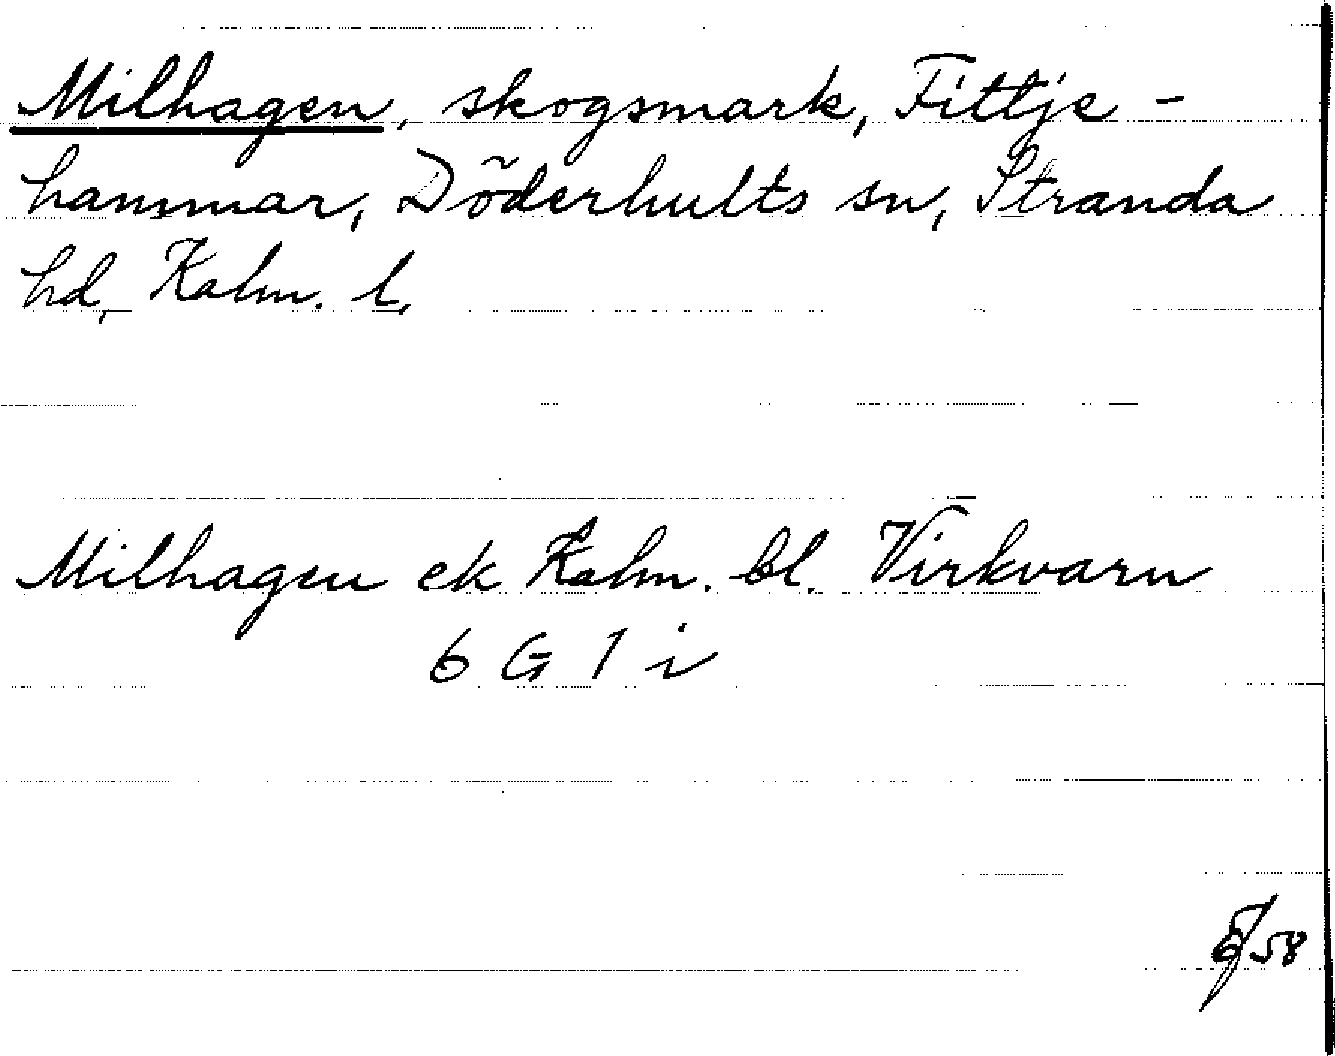 Milhagen, skogsmark, Fittje-
hammar, Döderhults sn, Stranda
hd, Kalm. l.
Milhagen ek Kalm. bl. Virkvarn
6 G 1 i
58